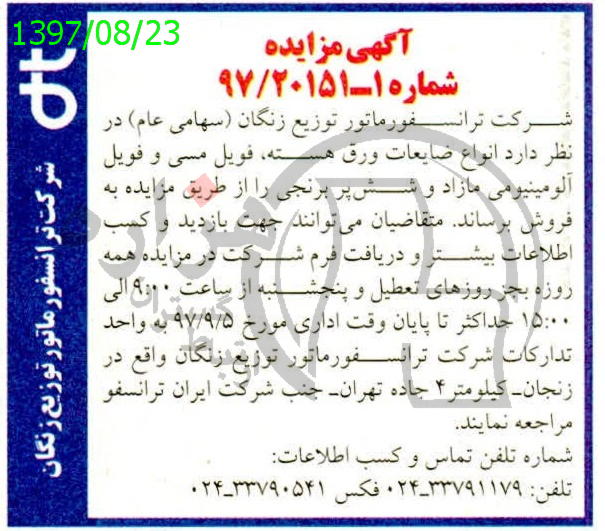 1397/08/23
آگهی مزایده
شماره ۱ـ۹۷/۲۰۱۵۱
شرکت ترانسفورماتور توزیع زنگان (سهامی عام) در
نظر دارد انواع ضایعات ورق هسته، فویل مسی و فویل
آلومینیومی مازاد و شش‌پر برنجی را از طریق مزایده به
فروش برساند. متقاضیان می‌توانند جهت بازدید و کسب
اطلاعات بیشتر و دریافت فرم شرکت در مزایده همه
روزه بجز روزهای تعطیل و پنجشنبه از ساعت ۹:۰۰ الی
۱۵:۰۰ حداکثر تا پایان وقت اداری مورخ ۹۷/۹/۵ به واحد
تدارکات شرکت ترانسفورماتور توزیع زنگان واقع در
زنجان_ کیلومتر ۴ جاده تهران_ جنب شرکت ایران ترانسفو
مراجعه نمایند.
شماره تلفن تماس و کسب اطلاعات:
تلفن: ۳۳۷۹۱۱۷۹_۰۲۴ فکس ۳۳۷۹۰۵۴۱_۰۲۴
dt
شرکت ترانسفورماتور توزیع زنگان